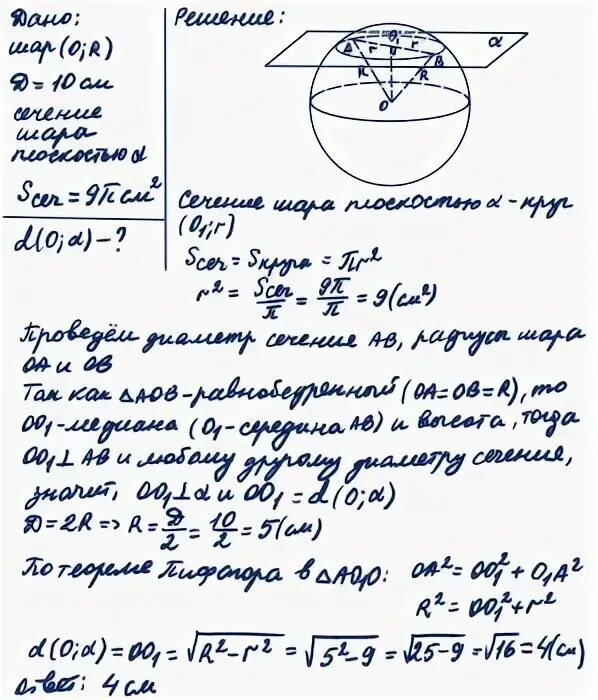 Дано:
шар (O;R)
D = 10 см
сечение
шара
плоскостью α
Sсеч = 9π см²
d(O;α) – ?
Решение:
α
A
O₁
r
r
B
R
R
O
Сечение шара плоскостью α – круг
(O₁;r)
Sсеч = Sкруга = πr²
r² = Sсеч/π = 9π/π = 9 (см²)
Проведём диаметр сечение AB, радиусы шара
OA и OB
Так как ΔAOB – равнобедренный (OA=OB=R), то
OO₁ – медиана (O₁ – середина AB) и высота, тогда
OO₁⊥AB и любому другому диаметру сечения,
значит, OO₁⊥α и OO₁ = d(O;α)
D = 2R => R = D/2 = 10/2 = 5 (см)
По теореме Пифагора в ΔAO₁O: OA² = OO₁² + O₁A²
R² = OO₁² + r²
d(O;α) = OO₁ = √R² – r² = √5² – 9 = √25 – 9 = √16 = 4 (см)
Ответ: 4 см